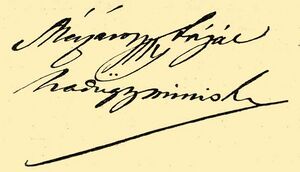 Mészáros Lázár
hadügyminister